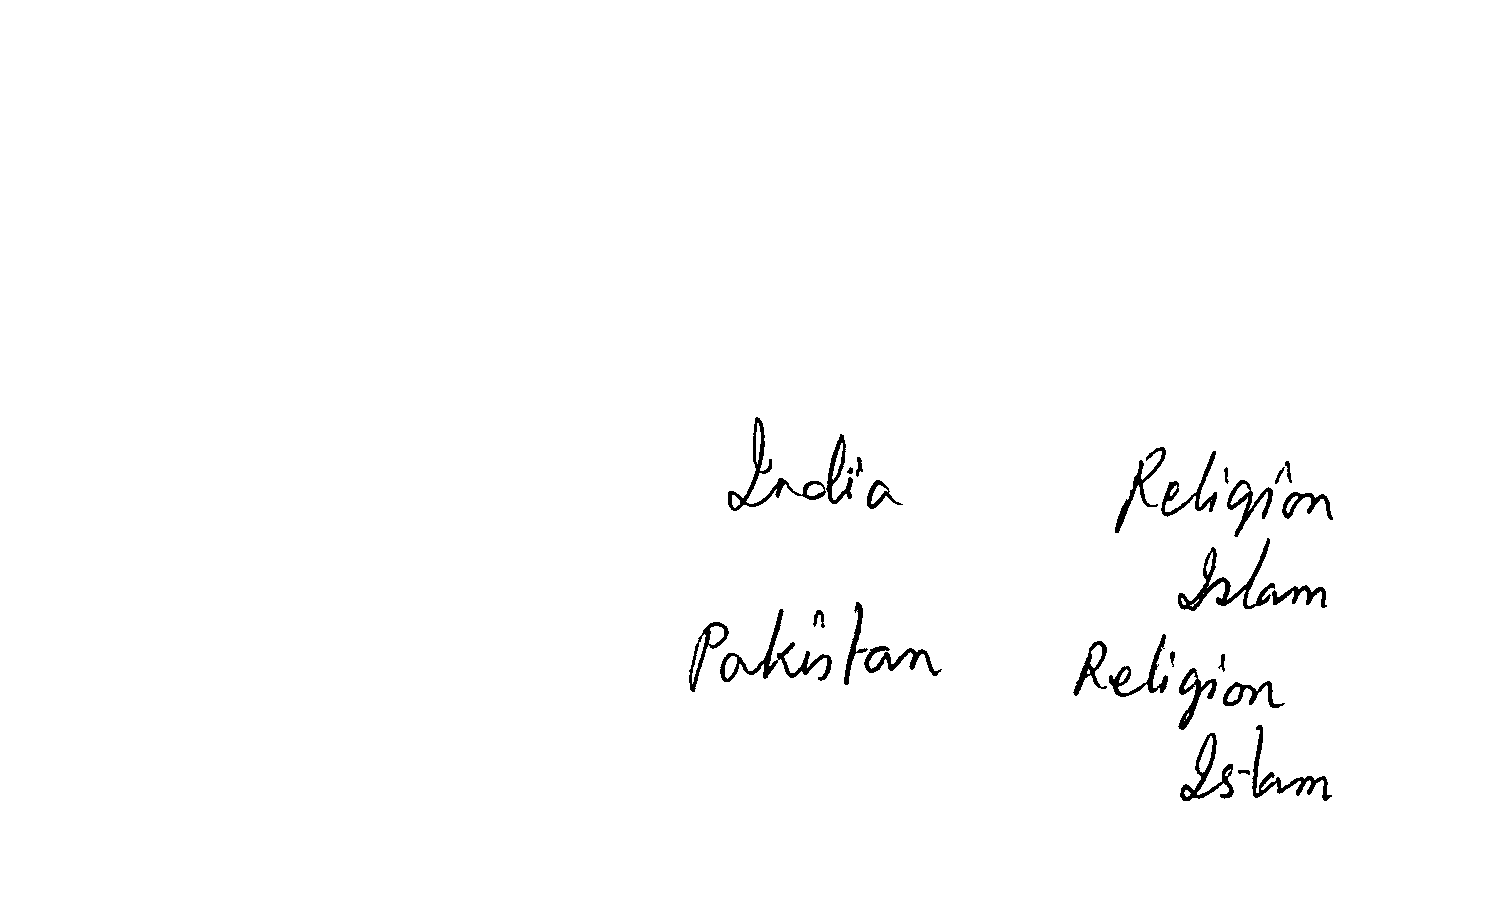 India Religion
Islam
Pakistan Religion
Islam